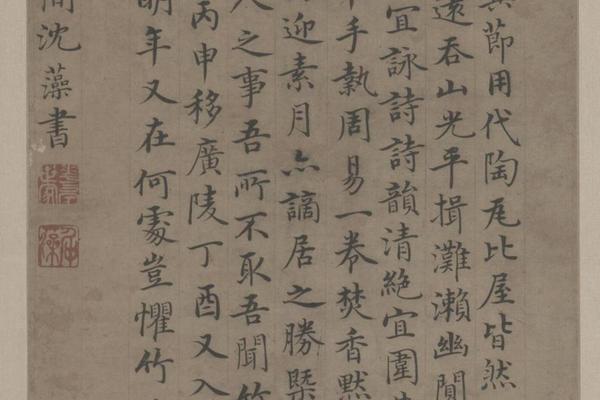 其節用代陶瓦比屋皆然
遠吞山光平揖灘瀨幽闃
宜詠詩詩韻清絕宜圍
手執周易一卷焚香默
迎素月亦謫居之勝槩
人之事吾所不取吾聞竹
丙申移廣陵丁酉又入
明年又在何處豈懼竹
間沈藻書